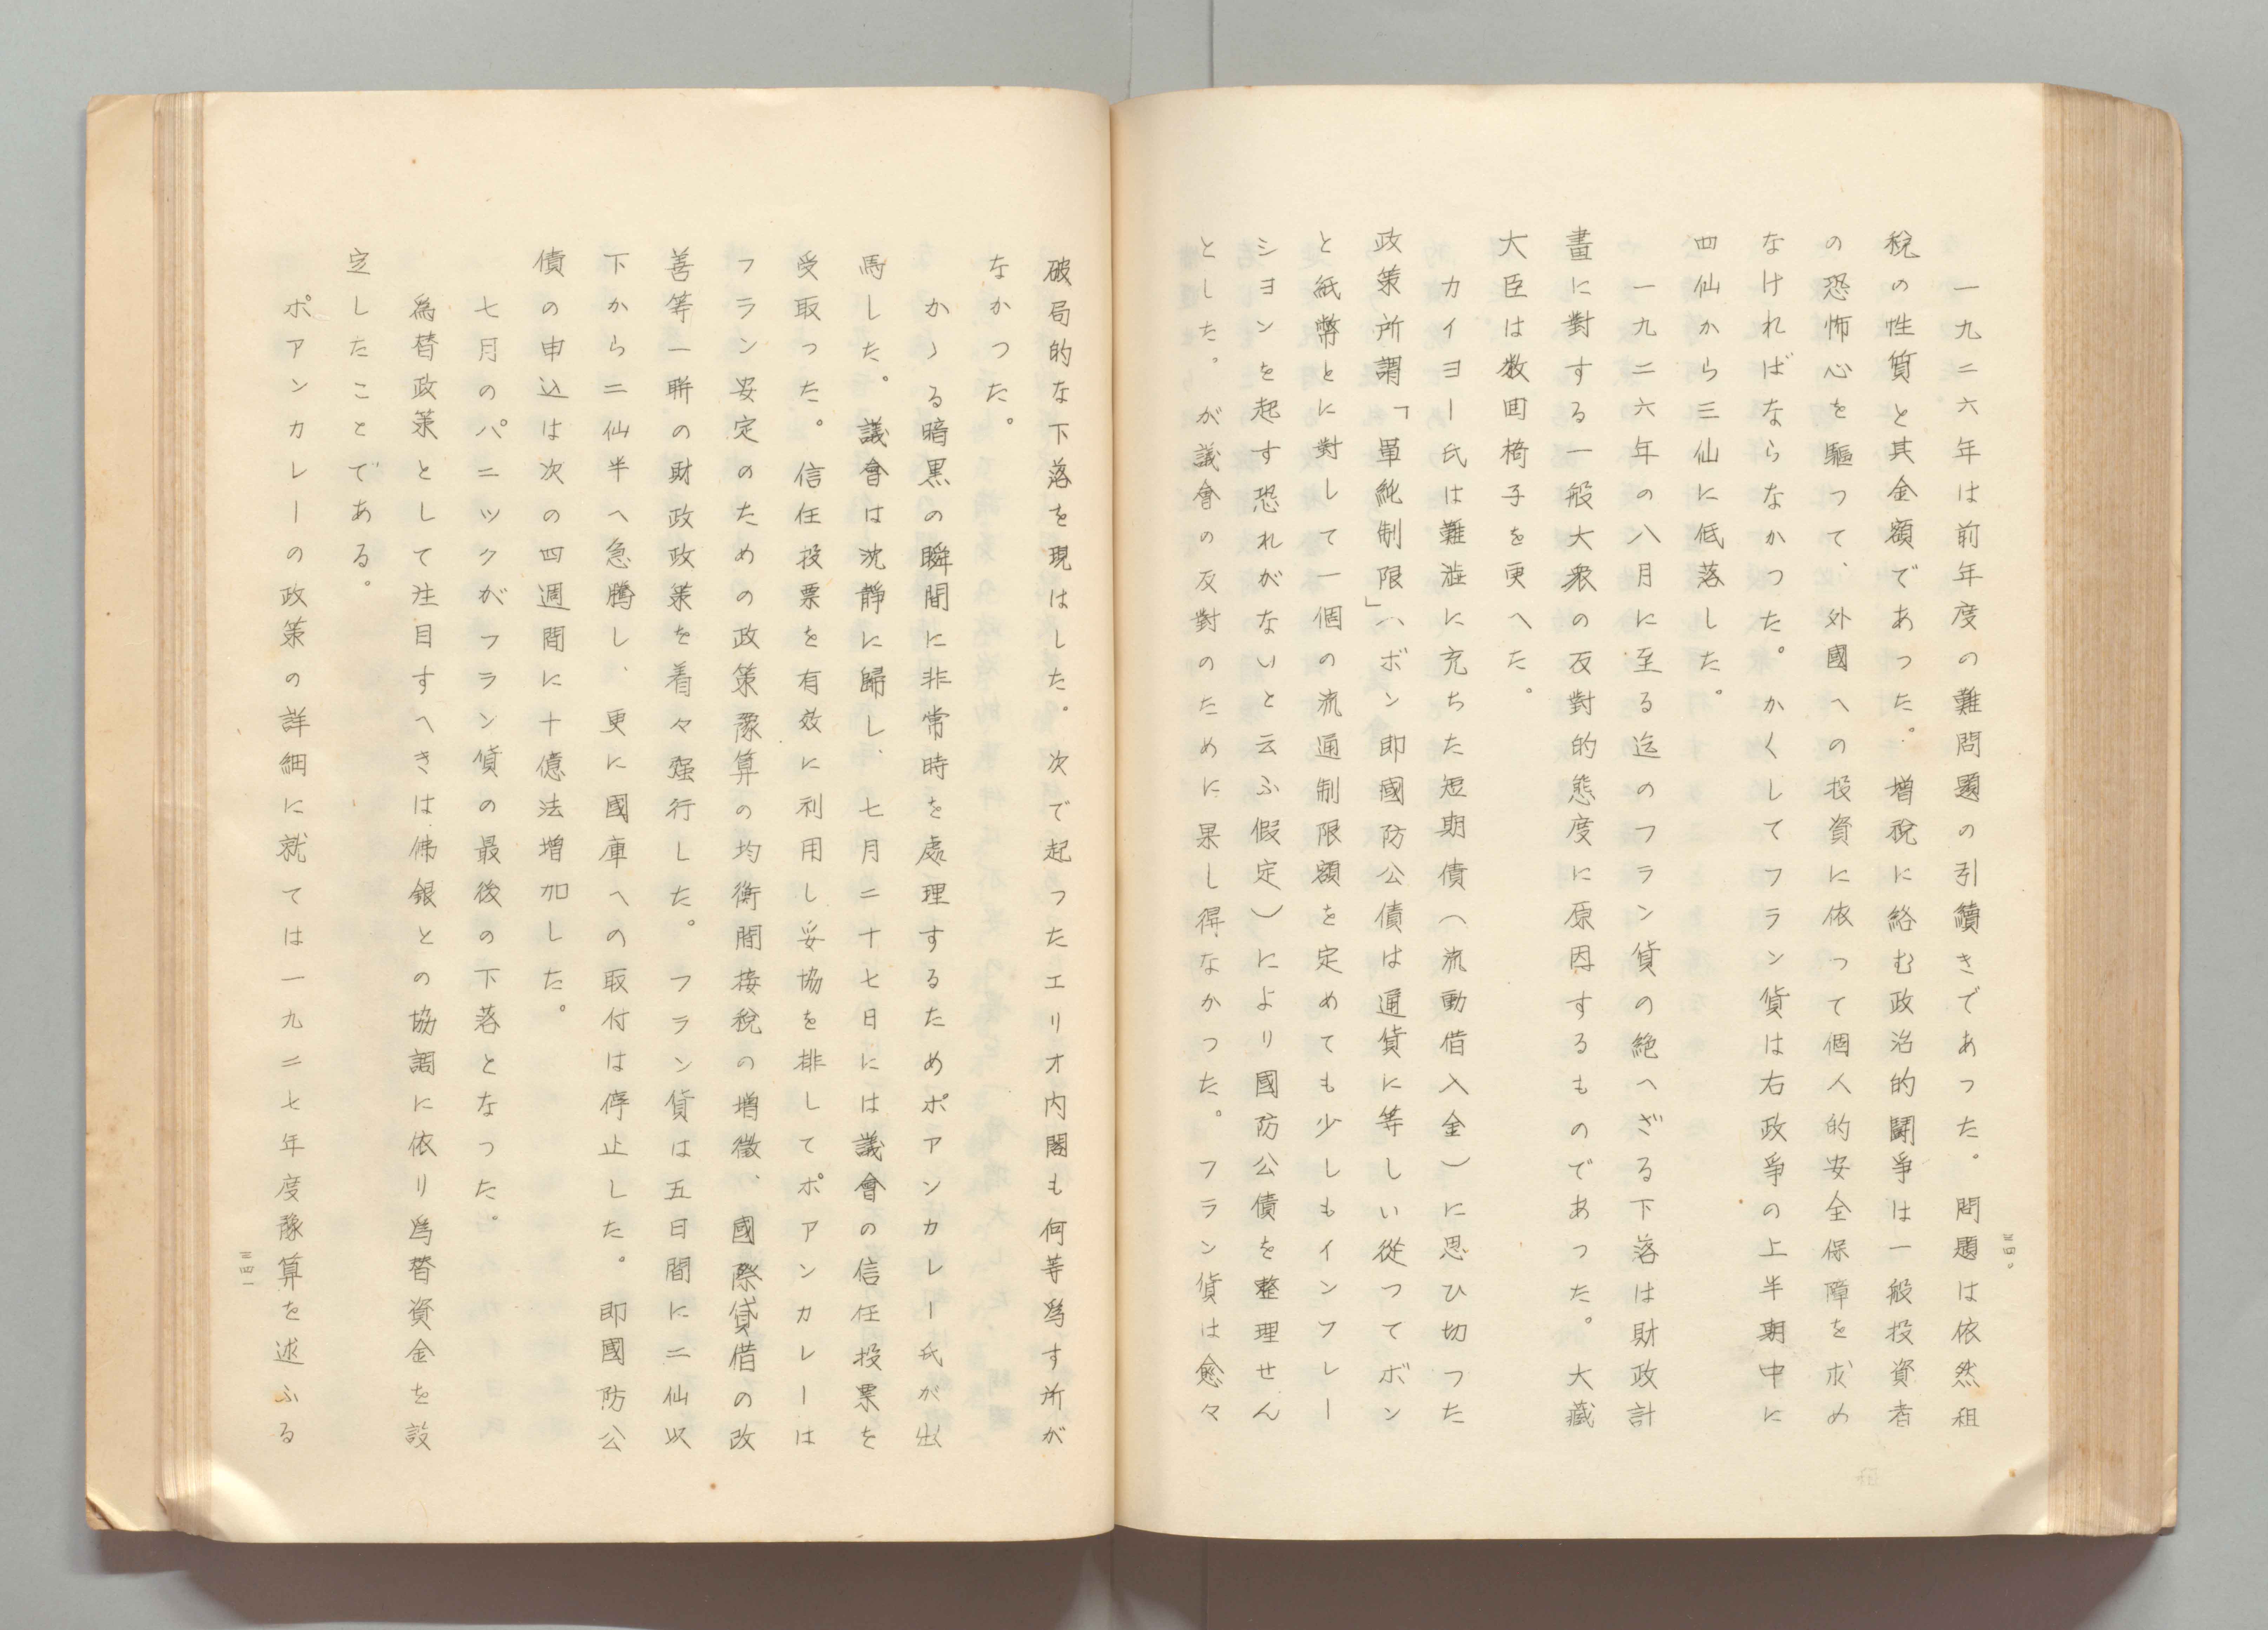 三四〇
一九二六年は前年度の難問題の引續きであつた。問題は依然租
税の性質と其金額であつた。増税に絡む政治的鬪爭は一般投資者
の恐怖心を驅つて、外國への投資に依つて個人的安全保障を求め
なければならなかつた。かくしてフラン貨は右政爭の上半期中に
四仙から三仙に低落した。
一九二六年の八月に至る迄のフラン貨の絶へざる下落は財政計
畫に對する一般大衆の反對的態度に原因するものであつた。大藏
大臣は数回椅子を更へた。
カイヨー氏は難澁に充ちた短期債（流動借入金）に思ひ切つた
政策所謂「單純制限」（ボン即國防公債は通貨に等しい從つてボン
と紙幣とに對して一個の流通制限額を定めても少しもインフレー
シヨンを起す恐れがないと云ふ假定）により國防公債を整理せん
とした。が議會の反對のために果し得なかつた。フラン貨は愈々
破局的な下落を現はした。次で起つたエリオ内閣も何等爲す所が
なかつた。
かゝる暗黒の瞬間に非常時を處理するためポアンカレー氏が出
馬した。議會は沈靜に歸し、七月二十七日には議會の信任投票を
受取つた。信任投票を有效に利用し妥協を排してポアンカレーは
フラン安定のための政策豫算の均衡間接税の増徴、國際貸借の改
善等一聯の財政政策を着々强行した。フラン貨は五日間に二仙以
下から二仙半へ急騰し、更に國庫への取付は停止した。即國防公
債の申込は次の四週間に十億法増加した。
七月のパニツクがフラン貨の最後の下落となつた。
爲替政策として注目すへきは佛銀との協調に依り爲替資金を設
定したことである。
ポアンカレーの政策の詳細に就ては一九二七年度豫算を述ふる
三四一